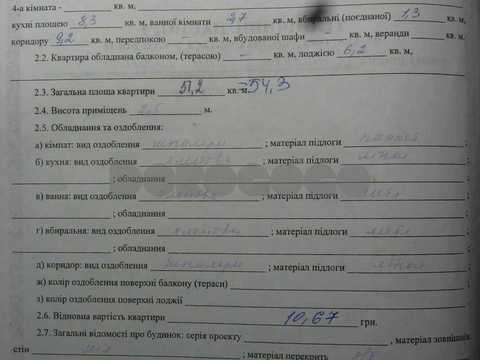 4-а кімната - кв. м,
кухні площею 8,3 кв. м, ванної кімнати 2,7 кв. м, вбиральні (поєднаної) 1,3 кв. м,
коридору 9,2 кв. м, передпокою - кв. м, вбудованої шафи - кв. м, веранди кв. м.
2.2. Квартира обладнана балконом, (терасою) - кв. м, лоджією 6,2 кв. м,
2.3. Загальна площа квартири 51,2 кв. м 54,3
2.4. Висота приміщень 2,5 м.
2.5. Обладнання та оздоблення:
а) кімнат: вид оздоблення шпалери ; матеріал підлоги паркет ;
б) кухня: вид оздоблення ; матеріал підлоги лінол ;
; обладнання ;
в) ванна: вид оздоблення ; матеріал підлоги ;
; обладнання ;
г) вбиральня: вид оздоблення ; матеріал підлоги ;
; обладнання ;
д) коридор: вид оздоблення шпалери ; матеріал підлоги ;
ж) колір оздоблення поверхні балкону (тераси) ;
з) колір оздоблення поверхні лоджії
2.6. Відновна вартість квартири 10,67 грн.
2.7. Загальні відомості про будинок: серія проекту , матеріал зовнішніх
стін ; матеріал перекрить